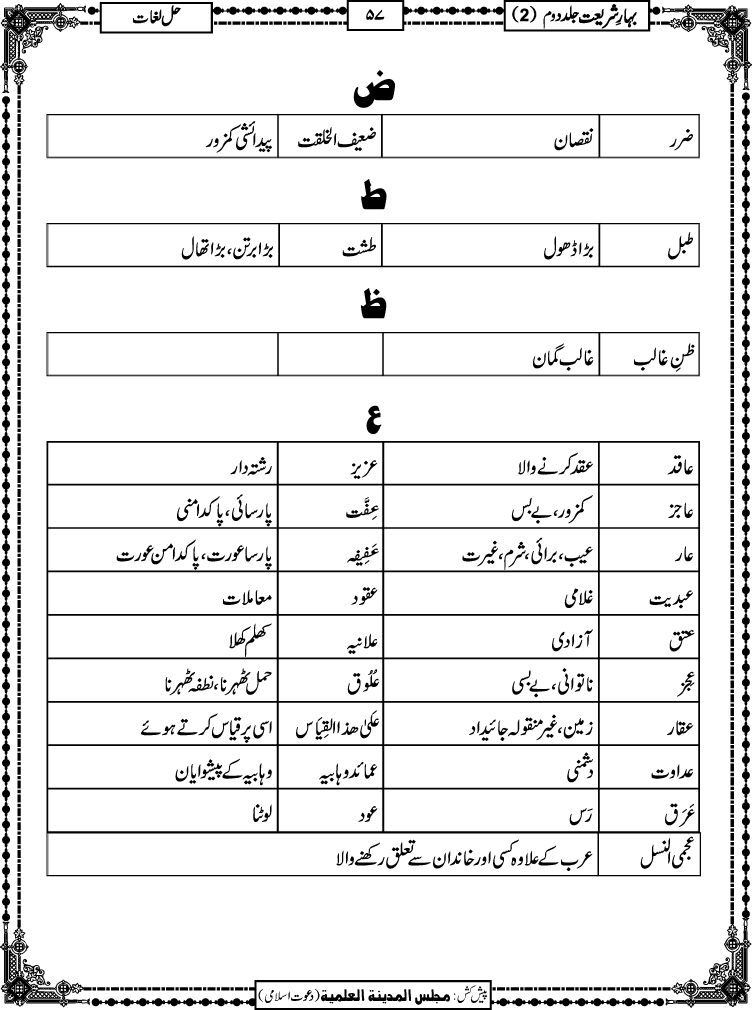 بہارِشریعت جلد دوم (2) ۵۷ حل لغات
ض
ضرر نقصان ضعیف الخلقت پیدائشی کمزور
ط
طبل بڑا ڈھول طشت بڑا برتن، بڑا تھال
ظ
ظنِ غالب غالب گمان
ع
عاقد عقد کرنے والا عزیز رشتہ دار
عاجز کمزور، بے بس عِفَّت پارسائی، پاکدامنی
عار عیب، برائی، شرم، غیرت عَفِیفہ پارسا عورت، پاکدامن عورت
عبدیت غلامی عقود معاملات
عتق آزادی علانیہ کھلم کھلا
عجز ناتوانی، بے بسی عُلُوق حمل ٹھہرنا، نطفہ ٹھہرنا
عقار زمین، غیر منقولہ جائیداد علیٰ ھذا القِیَاس اسی پر قیاس کرتے ہوئے
عداوت دشمنی عمائد وہابیہ وہابیہ کے پیشوایان
عَرَق رَس عود لوٹنا
عجمی النسل عرب کے علاوہ کسی اور خاندان سے تعلق رکھنے والا
پیش کش: مجلس المدینة العلمیة (دعوت اسلامی)